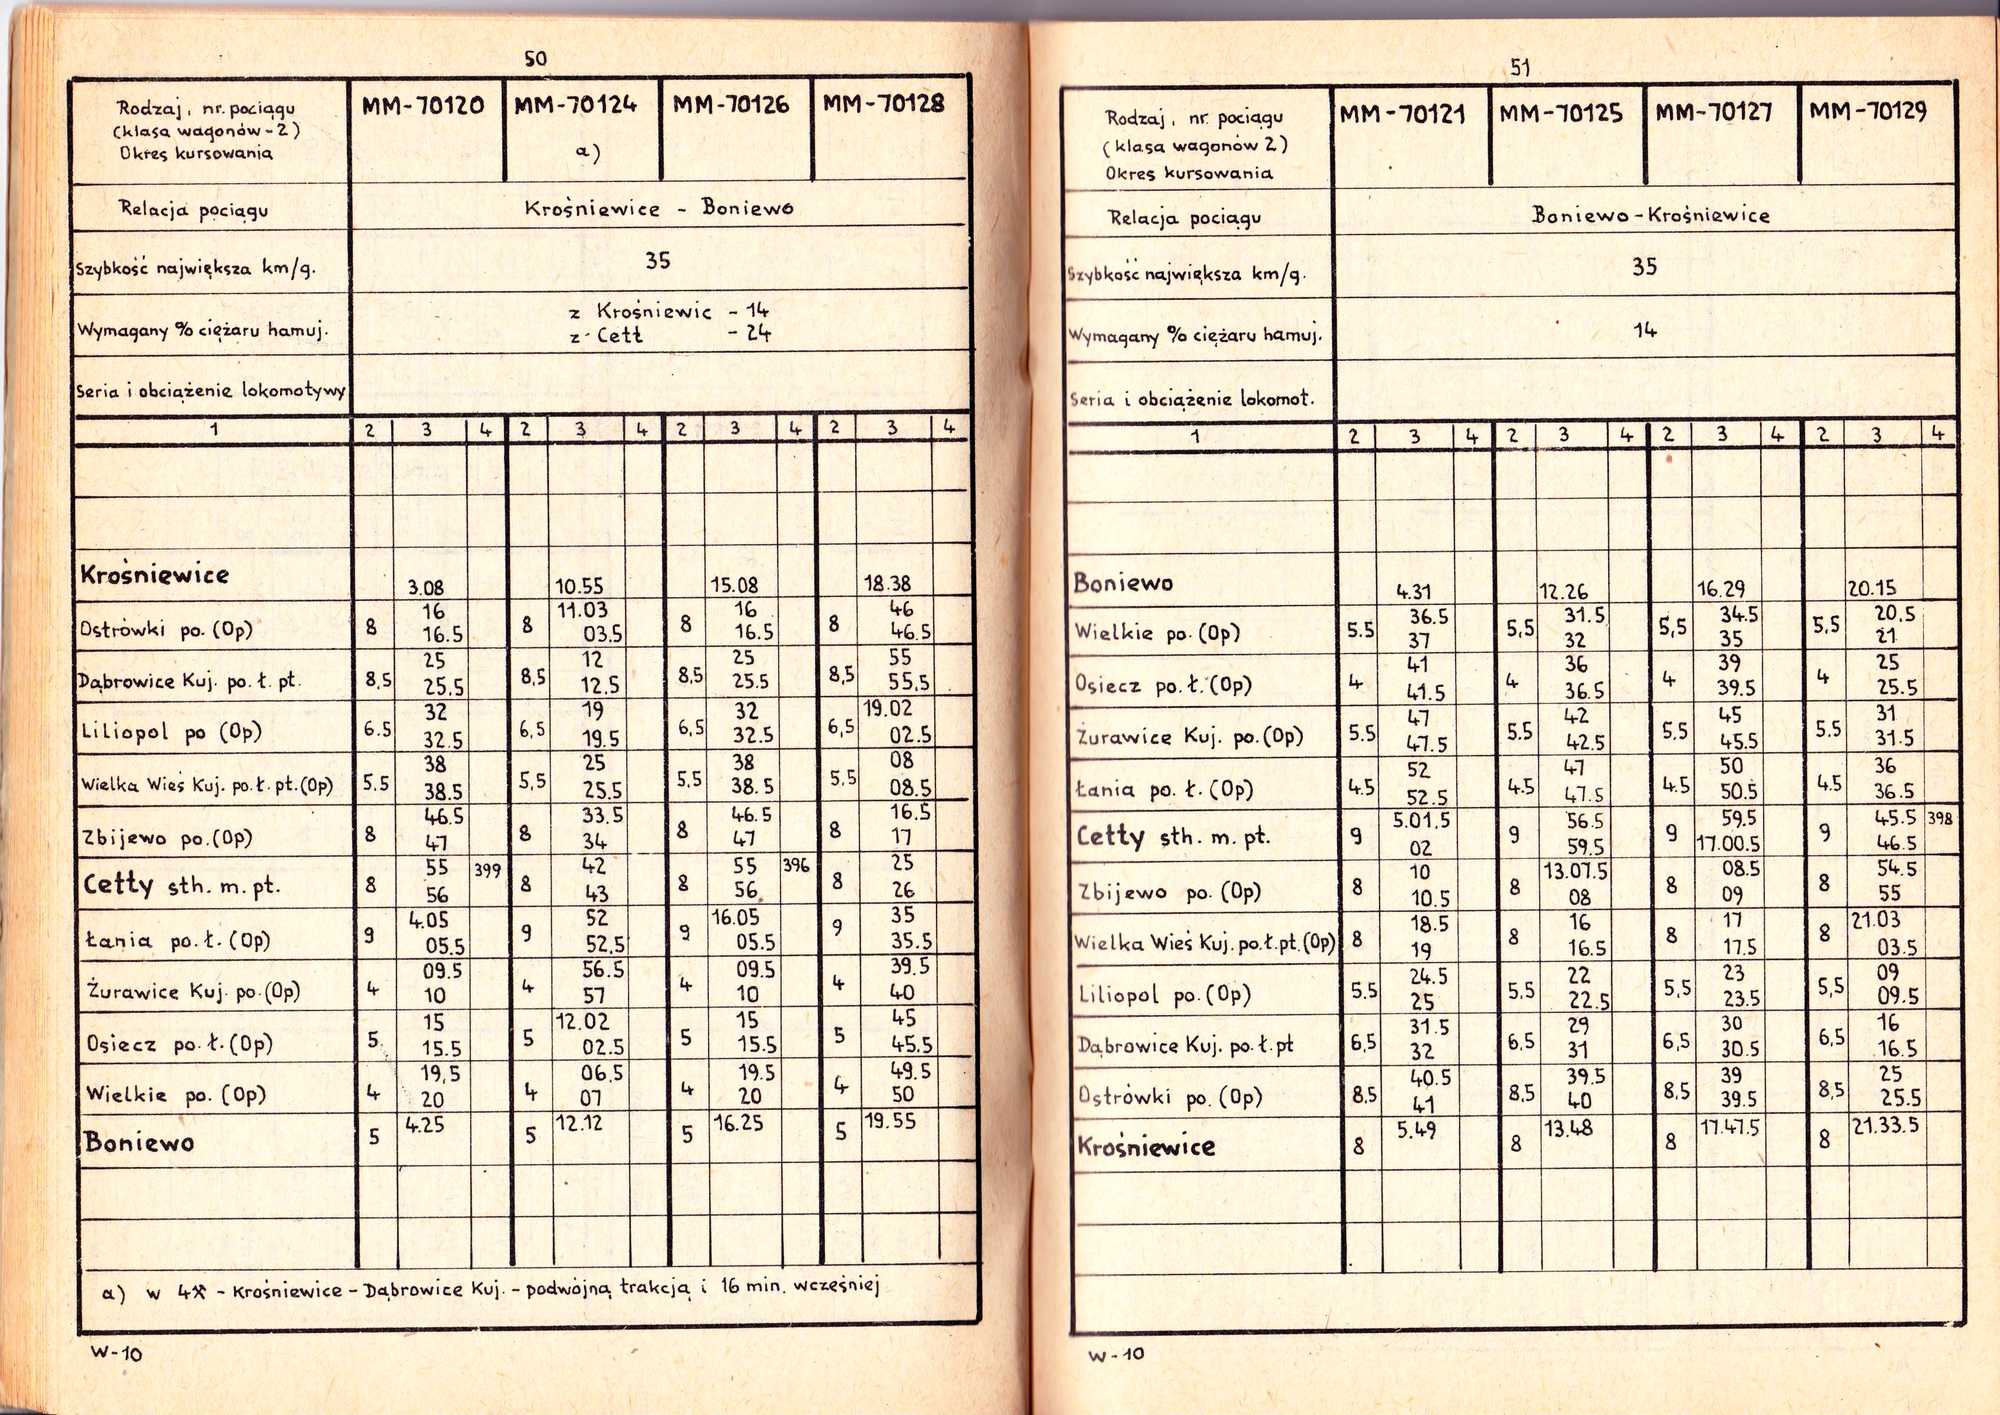 50
Rodzaj, nr. pociągu MM-70120 MM-70124 MM-70126 MM-70128
(klasa wagonów-2)
Okres kursowania a)
Relacja pociągu Krośniewice - Boniewo
Szybkość największa km/g. 35
Wymagany % ciężaru hamuj. z Krośniewic - 14
z Cett - 24
Seria i obciążenie lokomotywy
1 2 3 4 2 3 4 2 3 4 2 3 4
Krośniewice 3.08 10.55 15.08 18.38
16 11.03 16 46
Ostrówki po. (Op) 8 16.5 8 03.5 8 16.5 8 46.5
25 12 25 55
Dąbrowice Kuj. po. ł. pt. 8,5 25.5 8,5 12.5 8,5 25.5 8,5 55.5
32 19 32 19.02
Liliopol po (Op) 6.5 32.5 6,5 19.5 6,5 32.5 6,5 02.5
38 25 38 08
Wielka Wieś Kuj. po. ł. pt. (Op) 5.5 38.5 5,5 25.5 5,5 38.5 5.5 08.5
46.5 33.5 46.5 16.5
Zbijewo po. (Op) 8 47 8 34 8 47 8 17
55 399 42 55 396 25
Cetty sth. m. pt. 8 56 8 43 8 56 8 26
4.05 52 16.05 35
Łania po. ł. (Op) 9 05.5 9 52.5 9 05.5 9 35.5
09.5 56.5 09.5 39.5
Żurawice Kuj. po. (Op) 4 10 4 57 4 10 4 40
15 12.02 15 45
Osiecz po. ł. (Op) 5 15.5 5 02.5 5 15.5 5 45.5
19,5 06.5 19.5 49.5
Wielkie po. (Op) 4 20 4 07 4 20 4 50
4.25 12.12 16.25 19.55
Boniewo 5 5 5 5
a) w 4⚒ - Krośniewice - Dąbrowice Kuj. - podwójną trakcją i 16 min. wcześniej
W-10
51
Rodzaj, nr. pociągu MM-70121 MM-70125 MM-70127 MM-70129
(klasa wagonów 2)
Okres kursowania
Relacja pociągu Boniewo - Krośniewice
Szybkość największa km/g. 35
Wymagany % ciężaru hamuj. 14
Seria i obciążenie lokomot.
1 2 3 4 2 3 4 2 3 4 2 3 4
Boniewo 4.31 12.26 16.29 20.15
36.5 31.5 34.5 20.5
Wielkie po. (Op) 5.5 37 5,5 32 5,5 35 5,5 21
41 36 39 25
Osiecz po. ł. (Op) 4 41.5 4 36.5 4 39.5 4 25.5
47 42 45 31
Żurawice Kuj. po. (Op) 5.5 47.5 5.5 42.5 5.5 45.5 5.5 31.5
52 47 50 36
Łania po. ł. (Op) 4.5 52.5 4.5 47.5 4.5 50.5 4.5 36.5
5.01,5 56.5 59.5 45.5 398
Cetty sth. m. pt. 9 02 9 59.5 9 17.00.5 9 46.5
10 13.07.5 08.5 54.5
Zbijewo po. (Op) 8 10.5 8 08 8 09 8 55
18.5 16 17 21.03
Wielka Wieś Kuj. po.ł.pt. (Op) 8 19 8 16.5 8 17.5 8 03.5
24.5 22 23 09
Liliopol po. (Op) 5.5 25 5.5 22.5 5,5 23.5 5,5 09.5
31.5 29 30 16
Dąbrowice Kuj. po. ł. pt 6,5 32 6,5 31 6,5 30.5 6,5 16.5
40.5 39.5 39 25
Ostrówki po. (Op) 8.5 41 8.5 40 8,5 39.5 8,5 25.5
5.49 13.48 17.47.5 21.33.5
Krośniewice 8 8 8 8
W-10